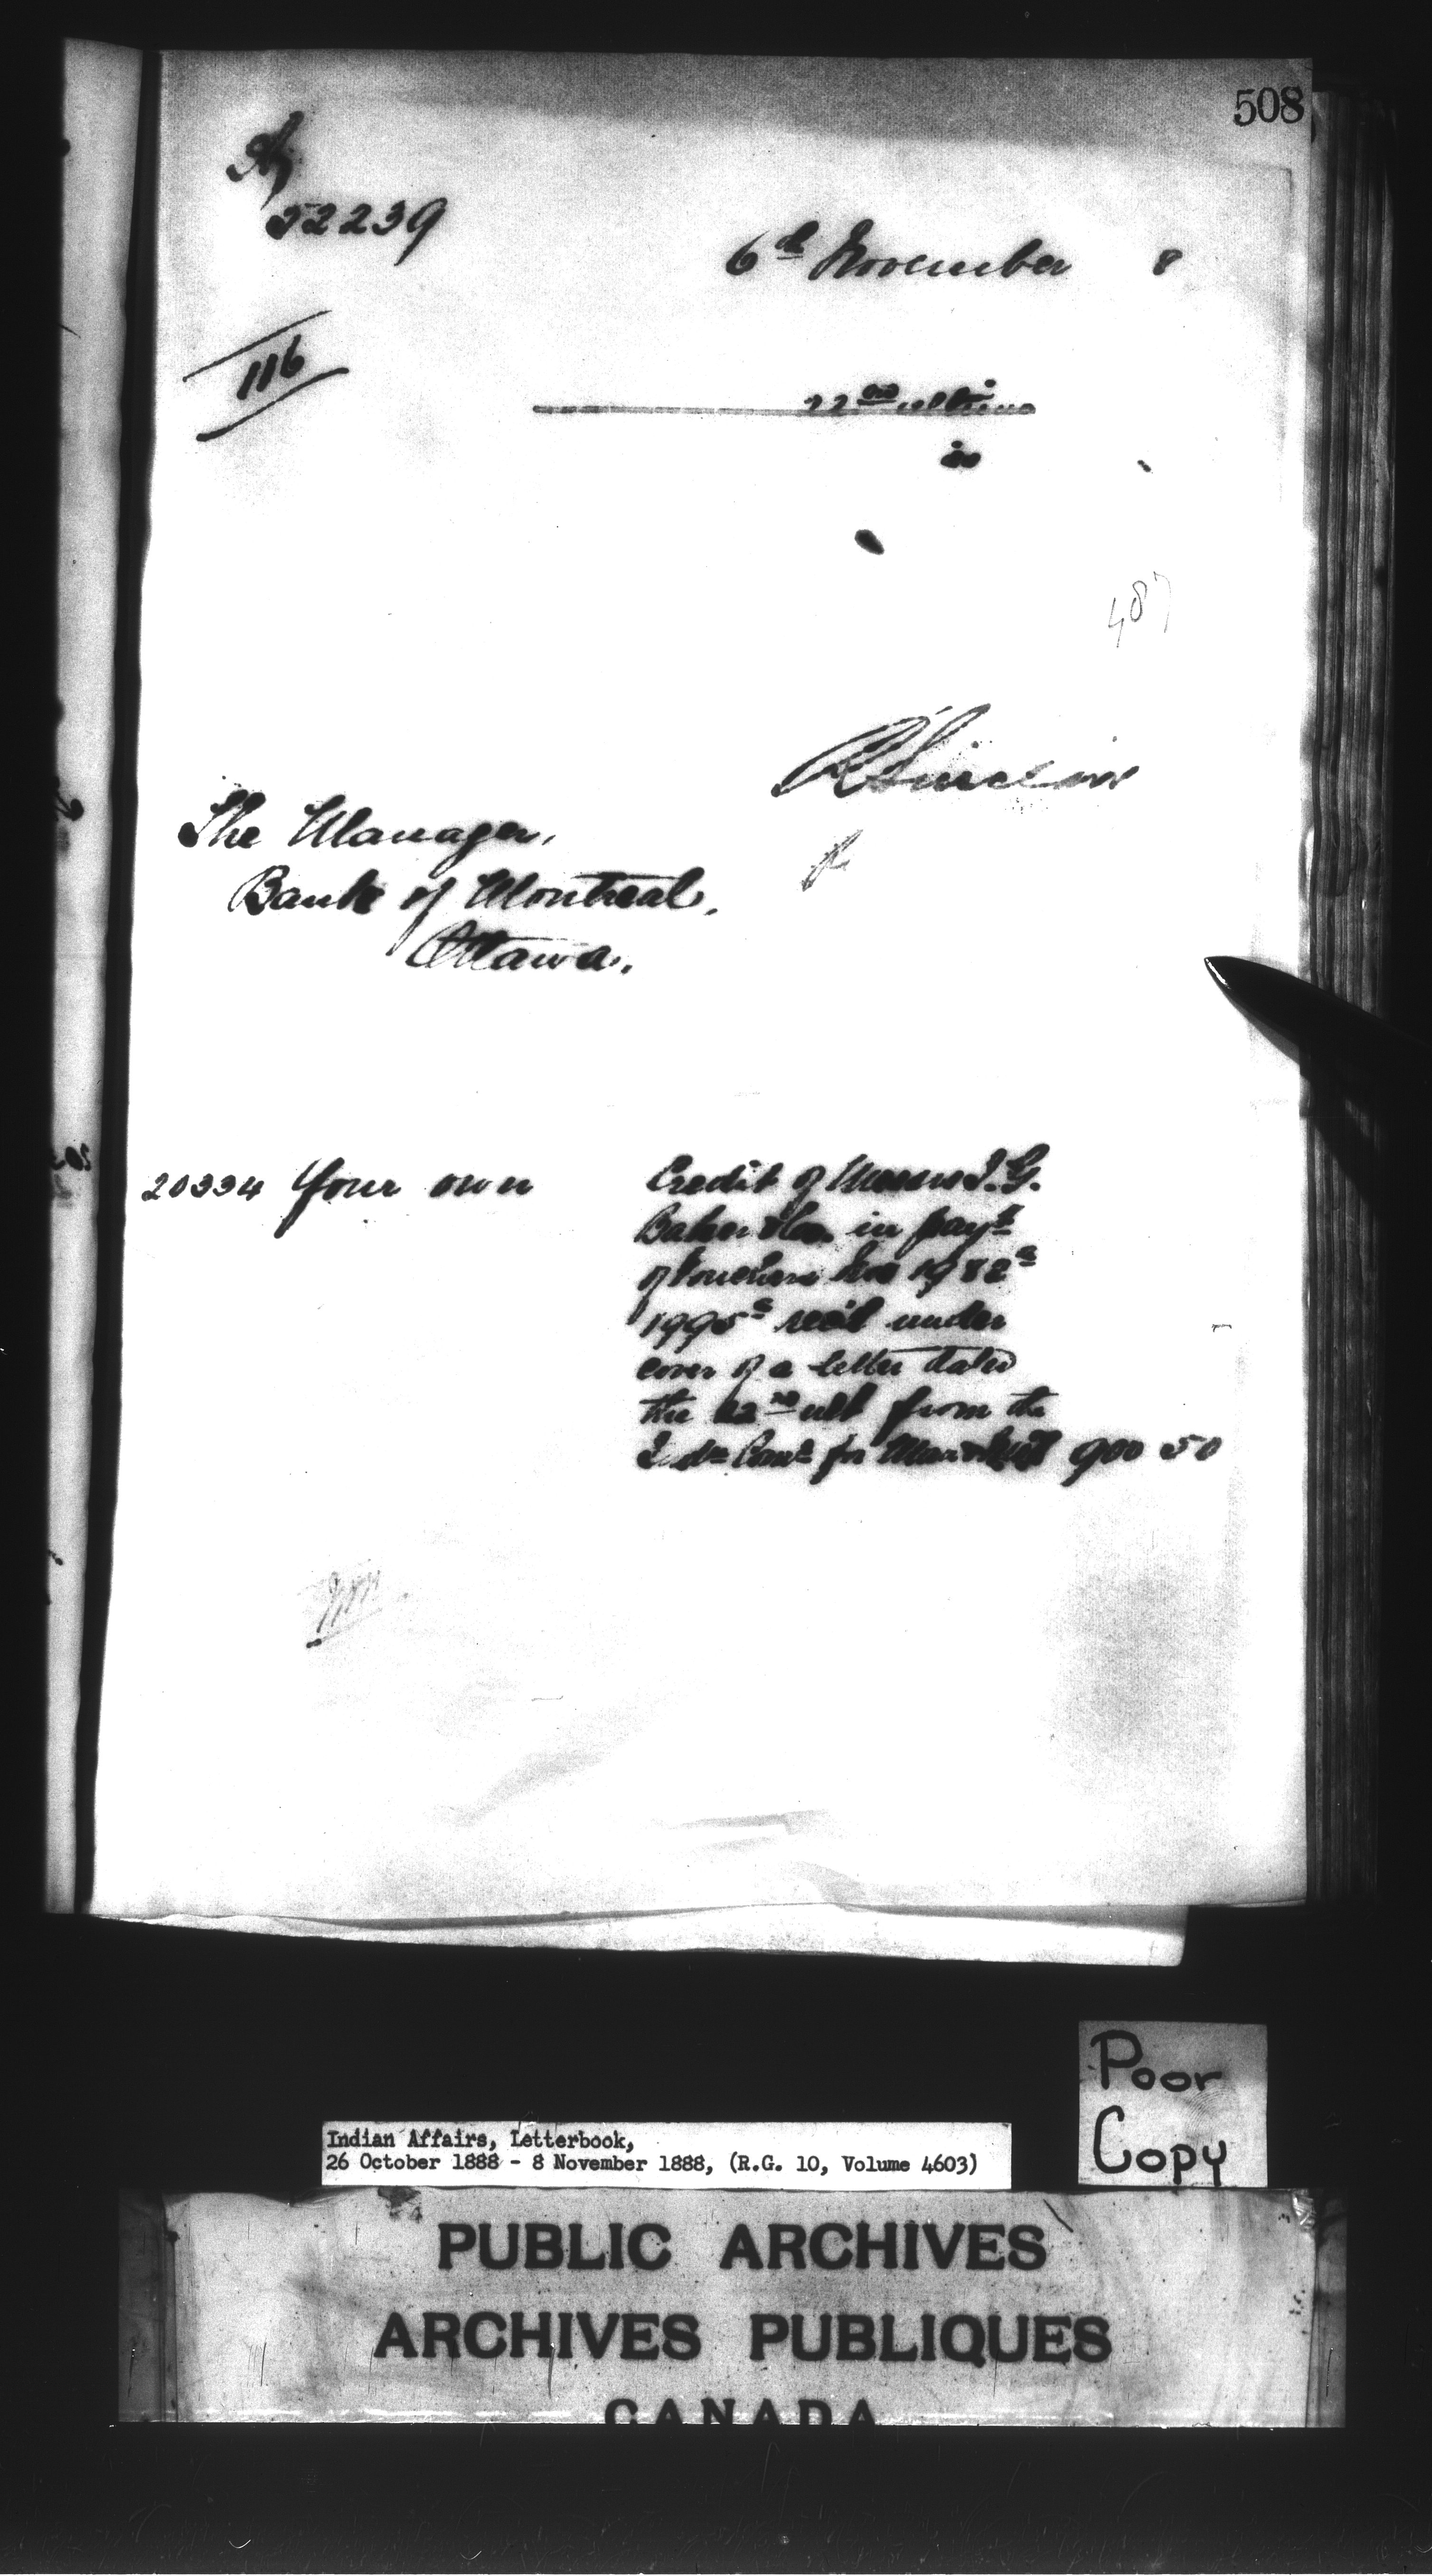 508
52239
6th November 8
116
22nd ultimo
in
487
R Sinclair
The Manager,
Bank of Montreal,
Ottawa.
20334 Your own
Credit of Messrs I. G.
Baker & Co. in payt
of Vouchers Nos 1982a
1995a rec'd under
cover of a letter dated
the 22nd ult from the
Indn Comr for 900 50
Poor
Copy
Indian Affairs, Letterbook,
26 October 1888 - 8 November 1888, (R.G. 10, Volume 4603)
PUBLIC ARCHIVES
ARCHIVES PUBLIQUES
CANADA